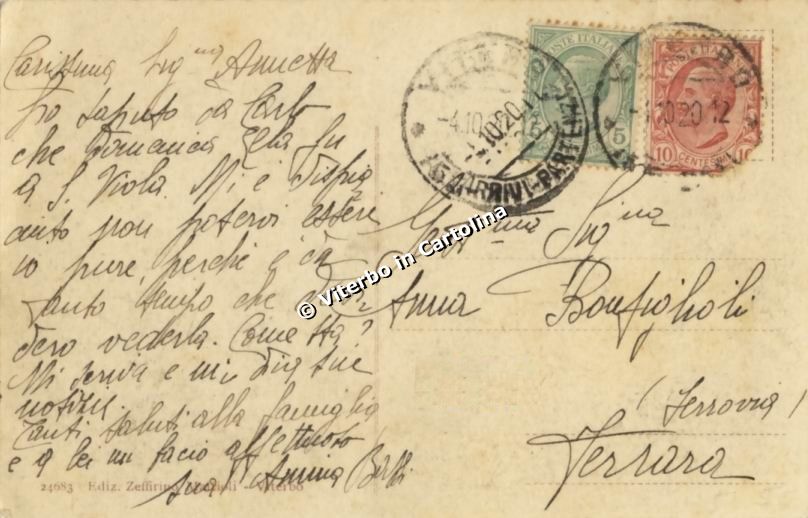 Carissima Sig.na Annetta
ho saputo da Carlo
che domenica Ella fu
a S. Viola. Mi è dispia
ciuto non potervi essere
io pure, perchè è da
tanto tempo che
dero vederla. Come sta?
Mi scriva e mi dia sue
notizie.
Tanti saluti alla famiglia
e a lei un bacio affettuoso
Sua Annina
24683 Ediz. Zeffirino - Viterbo
VITERBO
-4.10.20.12
ARRIVI-PARTENZE
POSTE ITALIANE
5
VITERBO
-4.10.20.12
POSTE ITALIANE
10 CENTESIMI 10
Gent.ma Sig.na
Anna Bonfiglioli
(Ferrovia)
Ferrara
© Viterbo in Cartolina